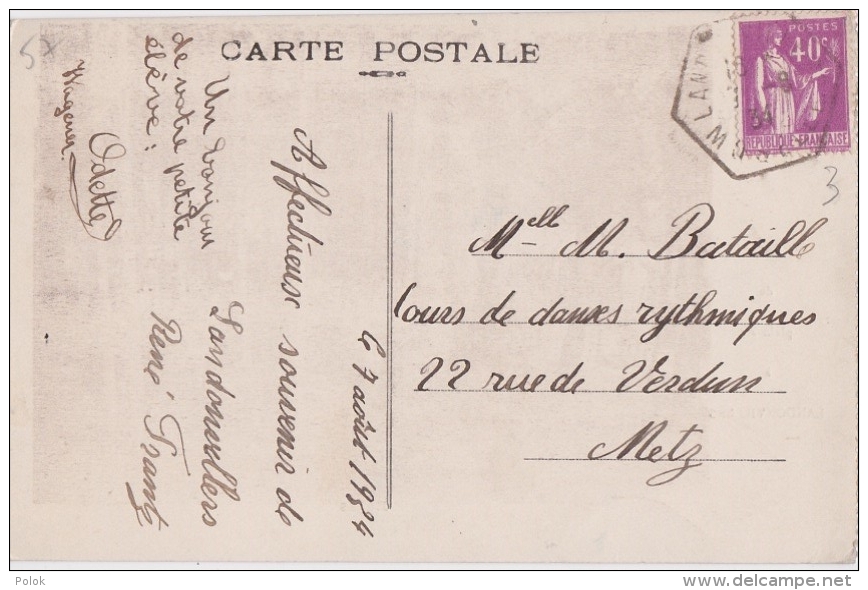 CARTE POSTALE
POSTES
40c
REPUBLIQUE FRANÇAISE
34
3
Mlle M. Bataille
Cours de danses rythmiques
22 rue de Verdun
Metz
le 7 août 1934
Affectueux souvenir de
Landonvillers
René Frantz
Un bonjour
de votre petite
élève :
Odette
Wagener.
Polok
www.delcampe.net